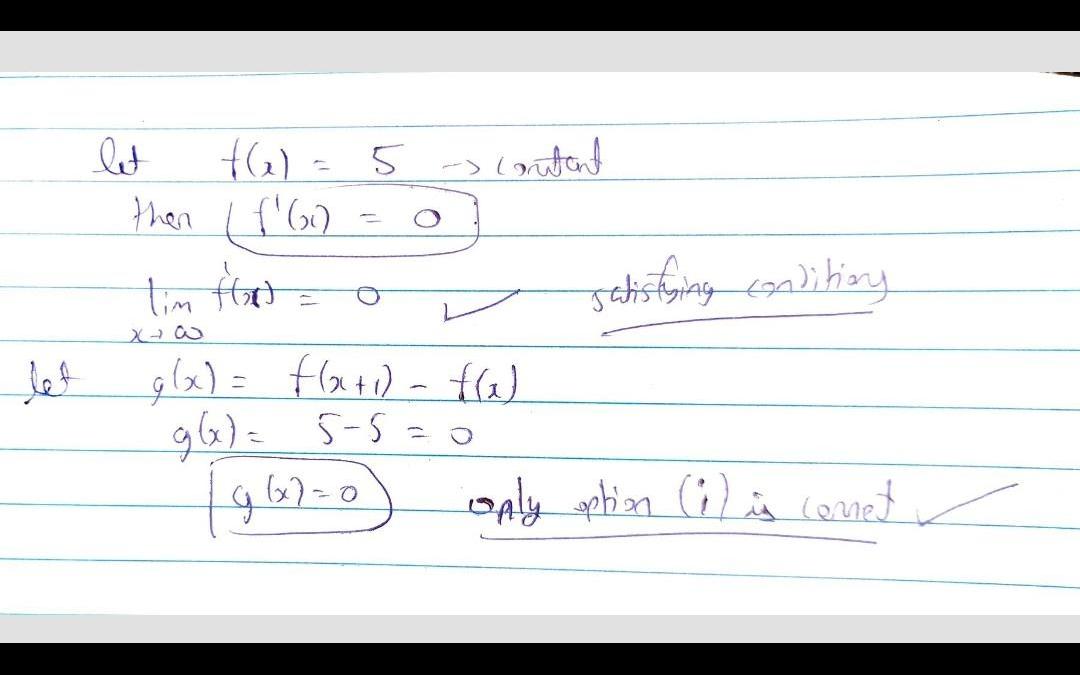 let f(x) = 5 → constant
then f'(x) = 0
lim f'(x) = 0 ✓ satisfying conditions
x→∞
let g(x) = f(x+1) - f(x)
g(x) = 5-5 = 0
g(x) = 0 only option (i) is correct ✓